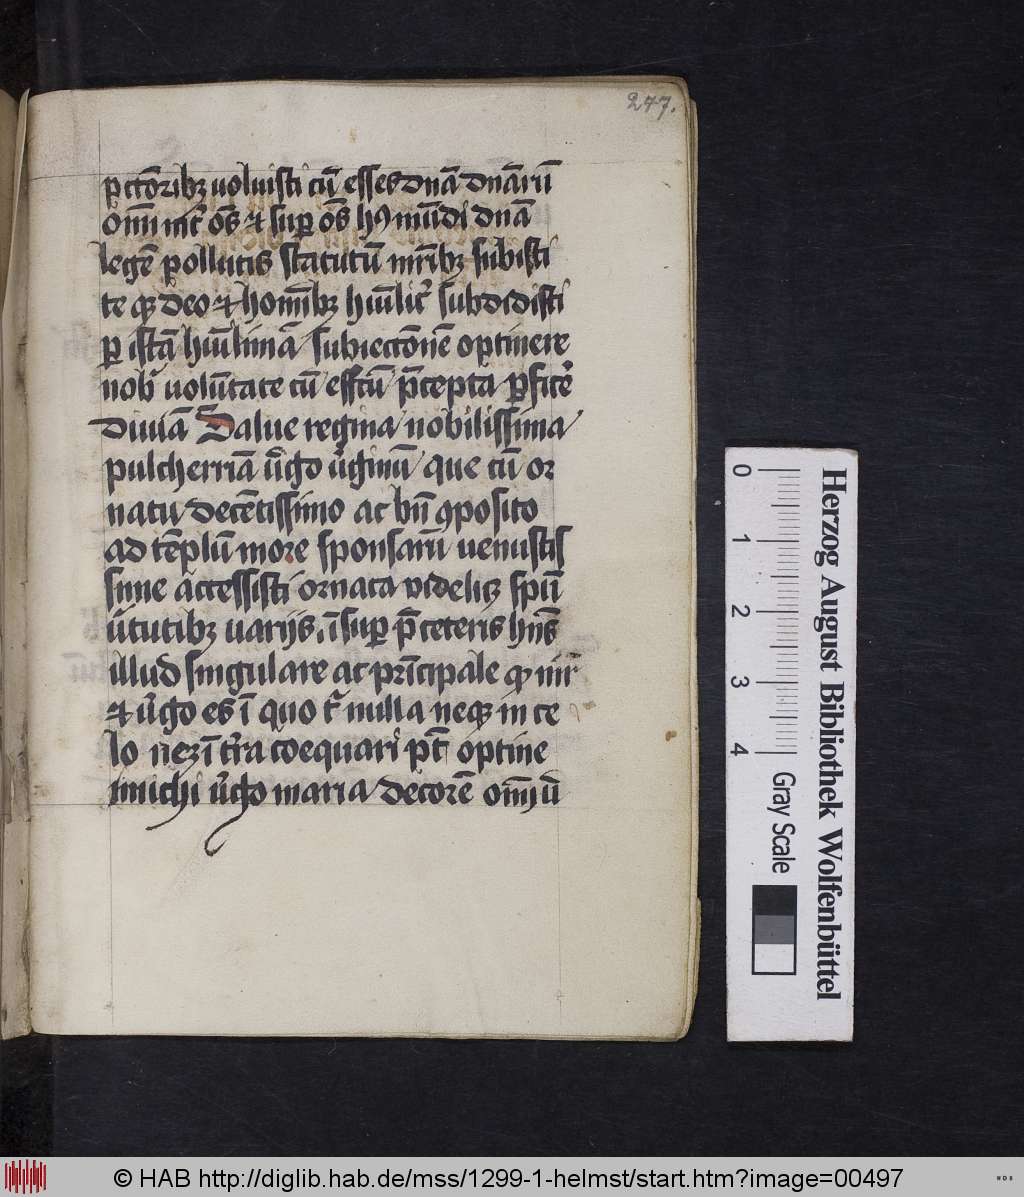 247.
pctōribꝫ uoluisti cū esses dnā dnārū
om̄i int̄ om̄s ⁊ suꝑ om̄s hꝰ mūdi dnā
legē pollutis statutū mr̄ibꝫ subisti
te qꝫ deo ⁊ homībꝫ hūilit᷑ subdidisti
ꝑ istā hūilimā subiectōnē optinere
nob̄ uolūtate cū effc̄tū p̄cepta ꝑfice᷑
diuiā Salue regina nobilissima
pulcherriā ūgo ūginū que cū or
natu decētissimo ac bn̄ ꝯposito
ad tēplū more sponsarū uenustis
sime accessisti ornata videlicꝫ spūī
ūtutibꝫ uarijs, ī suꝑ p̄ ceteris hn̄s
illud singulare ac prīcipale qꝫ mr̄
⁊ ūgo es ī quo t᷑ nulla neqꝫ in ce
lo nezī t᷑ra coequari pt̄ optine
michi ūgo maria decorē om̄iū
Herzog August Bibliothek Wolfenbüttel
0 1 2 3 4 Gray Scale
© HAB http://diglib.hab.de/mss/1299-1-helmst/start.htm?image=00497